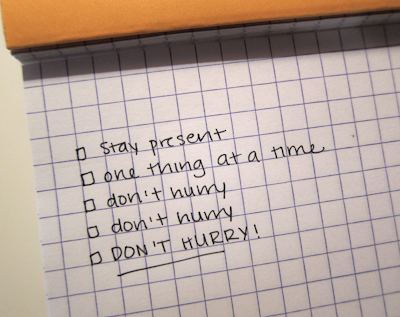 stay present
one thing at a time
don't hurry
don't hurry
DON'T HURRY!